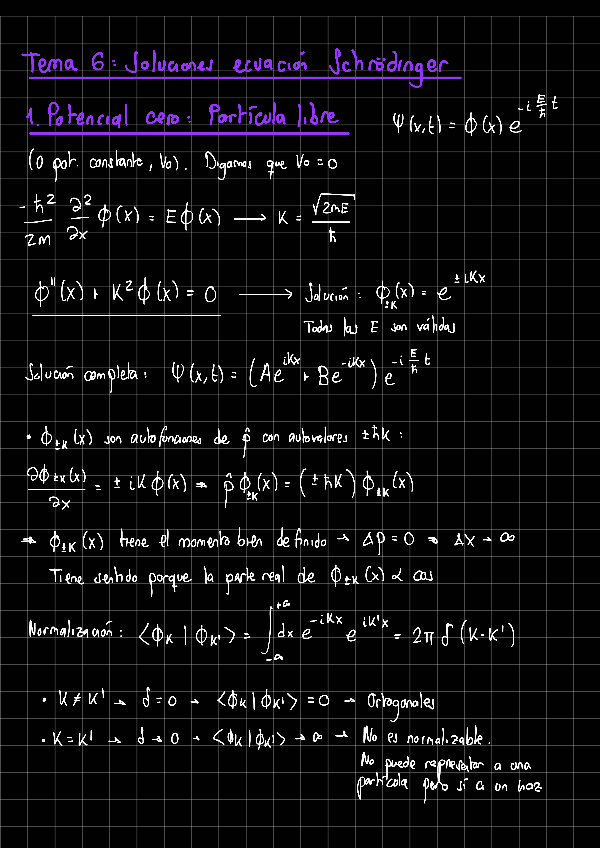 Tema 6: Soluciones ecuación Schrödinger
1. Potencial cero: Partícula libre
Ψ(x,t) = ϕ(x) e^{-i E/ħ t}
(O pot. constante, V₀). Digamos que V₀ = 0
-ħ²/2m ∂²/∂x ϕ(x) = Eϕ(x) → K = √(2mE)/ħ
ϕ''(x) + K²ϕ(x) = 0 → Solución: ϕ_{±K}(x) = e^{±iKx}
Todas las E son válidas
Solución completa: Ψ(x,t) = (Ae^{iKx} + Be^{-iKx}) e^{-i E/ħ t}
• ϕ_{±K}(x) son autofunciones de p̂ con autovalores ±ħK:
∂ϕ_{±K}(x)/∂x = ± iKϕ(x) ⇒ p̂ ϕ_{±K}(x) = (±ħK) ϕ_{±K}(x)
⇒ ϕ_{±K}(x) tiene el momento bien definido → Δp = 0 ⇒ Δx → ∞
Tiene sentido porque la parte real de ϕ_{±K}(x) ∝ cos
Normalización: ⟨ϕ_K | ϕ_{K'}⟩ = ∫_{-∞}^{+∞} dx e^{-iKx} e^{iK'x} = 2π δ(K-K')
• K ≠ K' → δ = 0 → ⟨ϕ_K | ϕ_{K'}⟩ = 0 → Ortogonales
• K = K' → δ → 0 → ⟨ϕ_K | ϕ_{K'}⟩ → ∞ → No es normalizable.
No puede representar a una
partícula pero sí a un haz